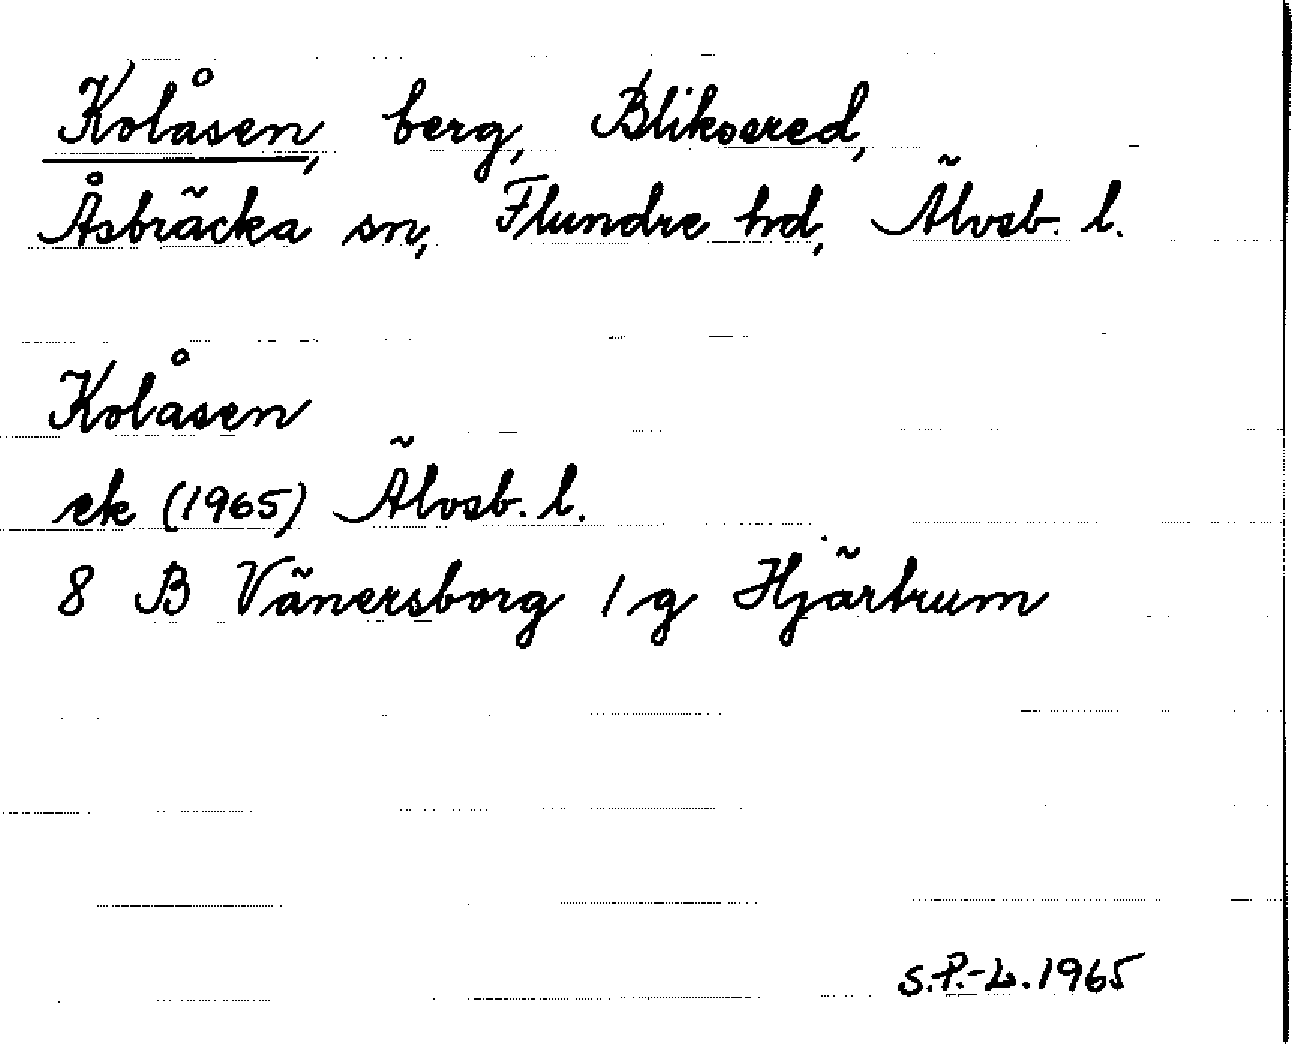 Kolåsen, berg, Bliksered,
Åsbräcka sn, Flundre hd, Älvsb. l.
Kolåsen
ek (1965) Älvsb. l.
8 B Vänersborg 1 g Hjärtrum
S.P.-L. 1965